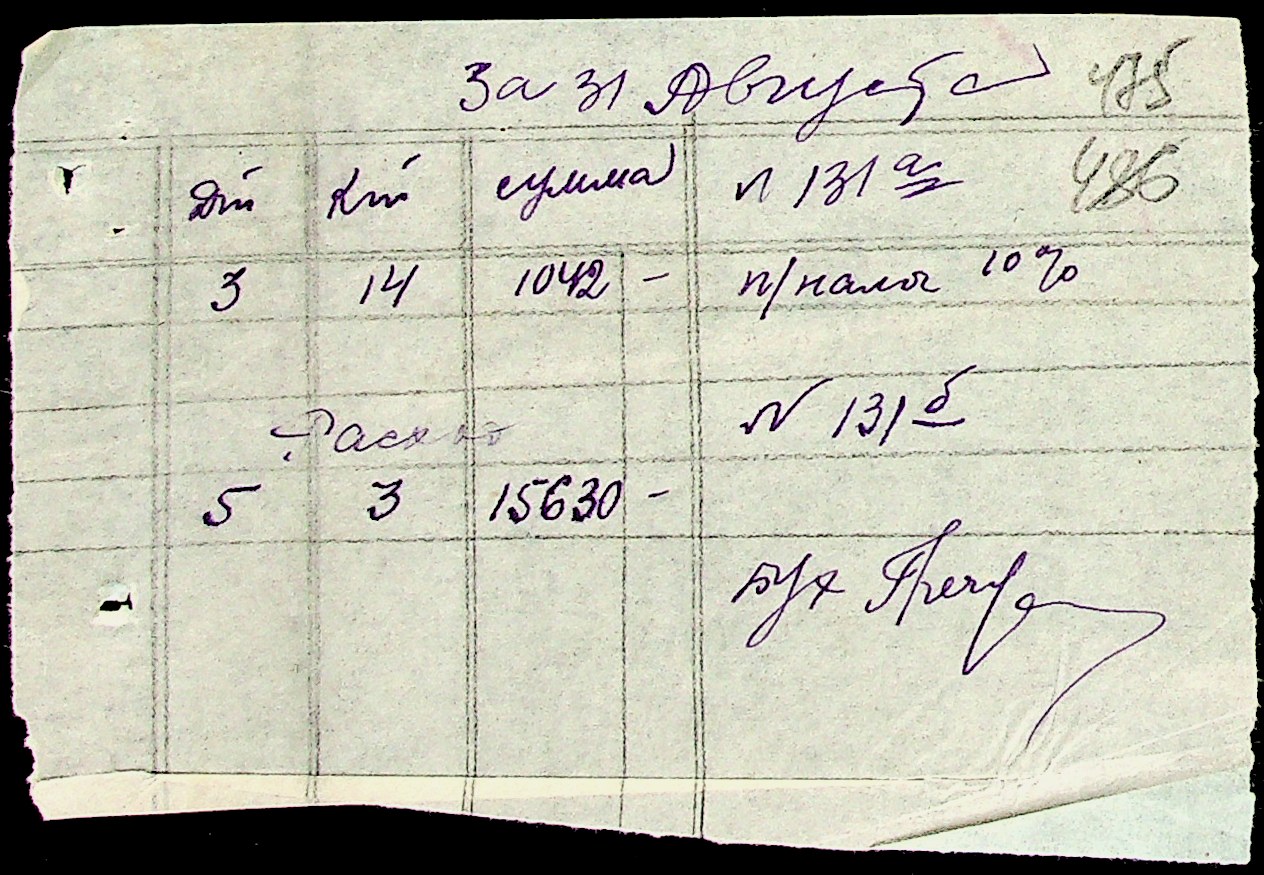 За 31 Августа 475
Дт Кт сумма N 131 а 486
3 14 1042 - п/налог 10%
N 131 б
Расход
5 3 15630 -
Бух